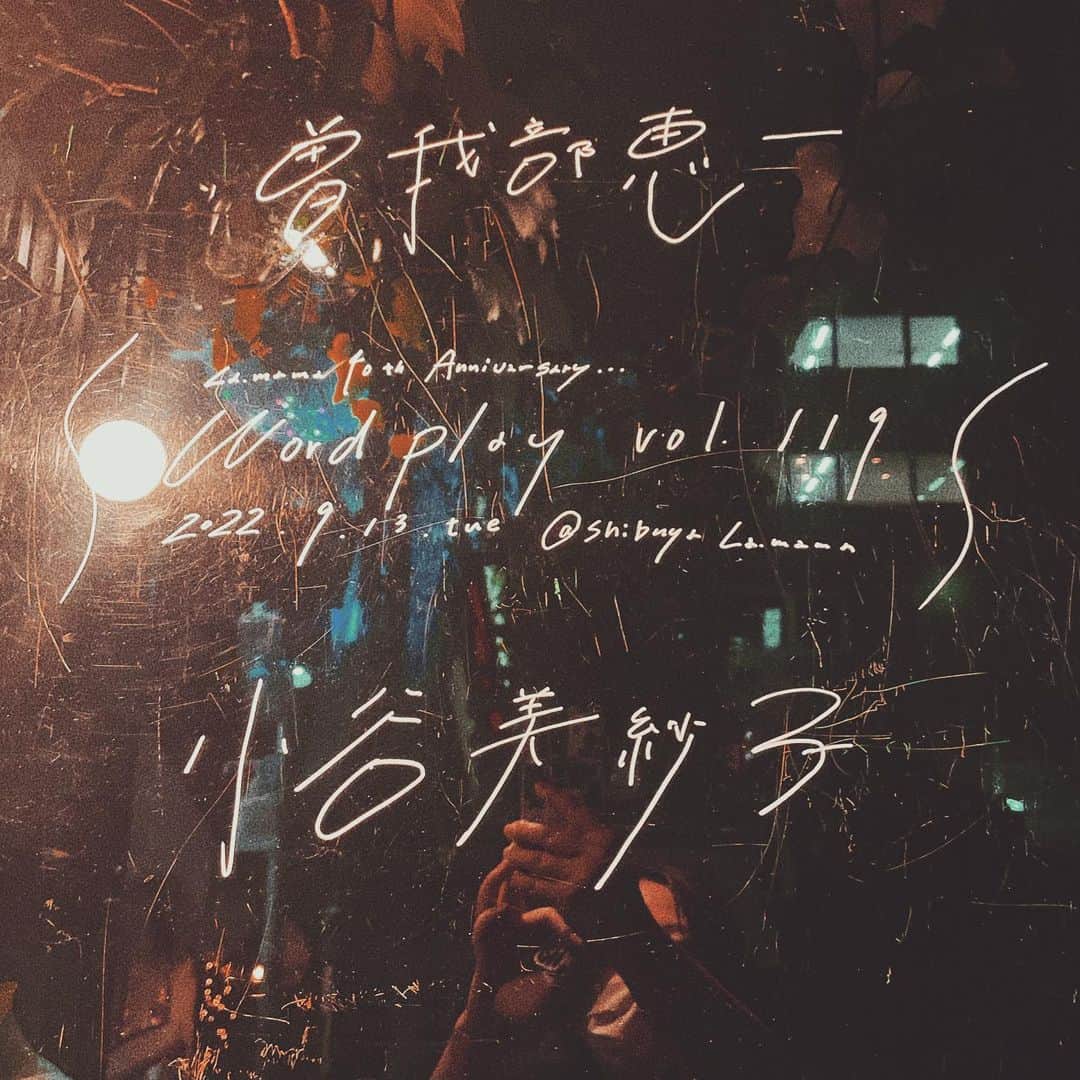 曽我部恵一
La.mama 40th Anniversary...
Wordplay vol.119
2022.9.13.tue @Shibuya La.mama
小谷美紗子